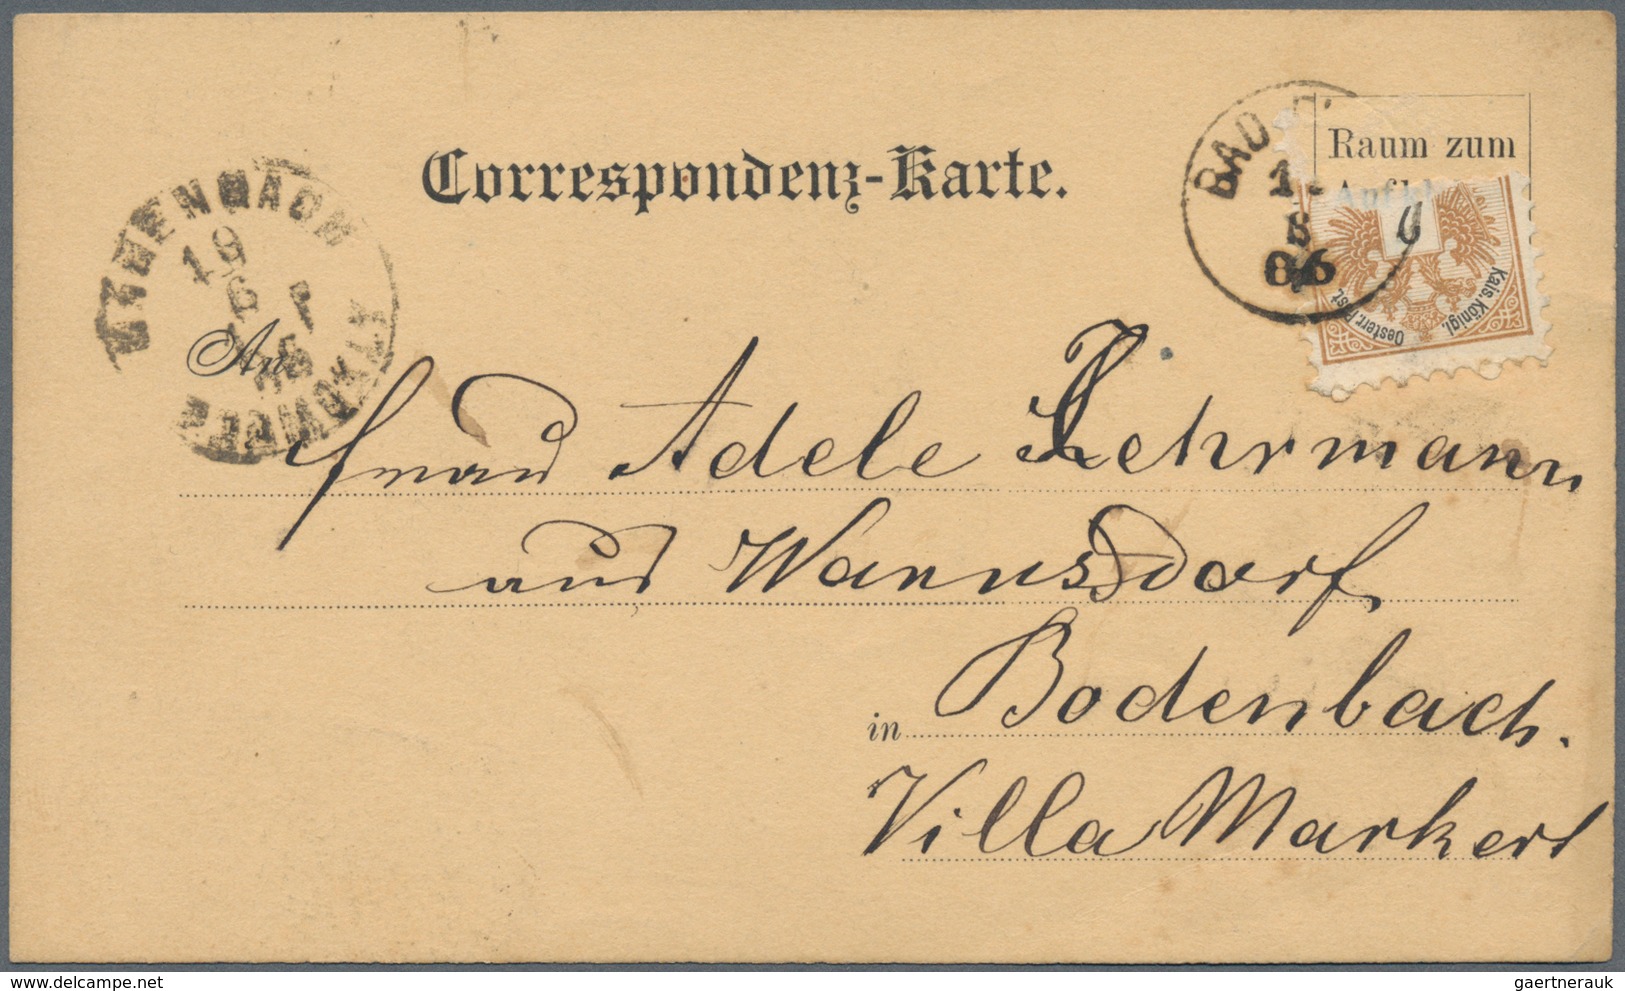 Correspondenz-Karte.
Raum zum
BAD
1
8
86
Kais. Königl.
Oesterr. Post.
19
6
An
Frau Adele Lehrmann
aus Warnsdorf
in Bodenbach.
Villa Markert
gaertnerauk